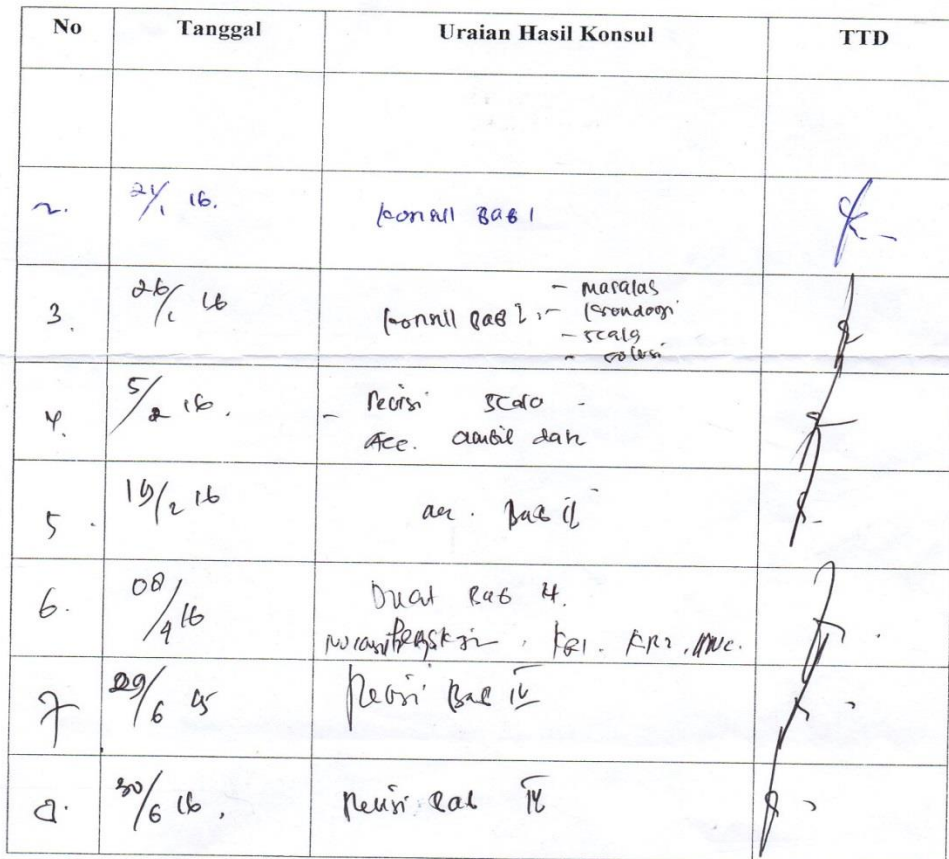 No Tanggal Uraian Hasil Konsul TTD
2. 21/1 16. Konsul BAB 1
3. 26/1 16 Konsul BAB I :- - masalah
- kronologi
- scala
- solusi
4. 5/2 16. - Revisi scala -
Acc. ambil data
5. 19/2 16 acc. Bab II
6. 08/4 16 Buat Bab 4.
7 29/6 15 Revisi Bab IV
8. 30/6 16. Revisi Bab IV